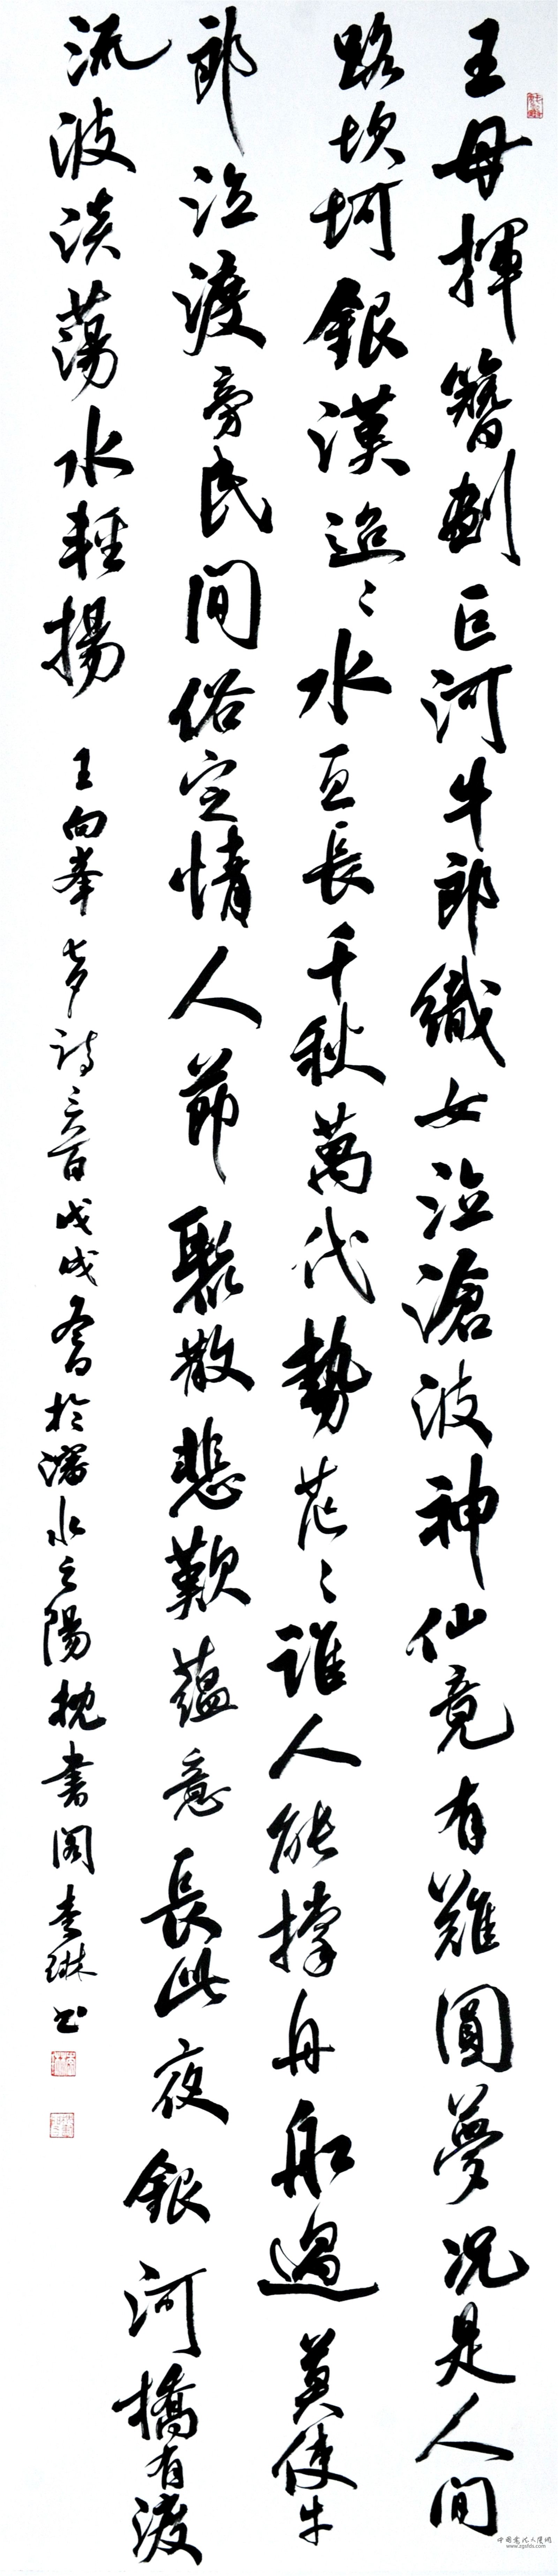 王母揮簪劃巨河牛郎織女泣滄波神仙竟有難圓夢况是人間
路坎坷銀漢迢〻水亙長千秋萬代勢茫〻誰人能撐舟舩過莫使牛
郎泣渡旁民間俗定情人節聚散悲歎蘊意長此夜銀河橋有渡
流波淡蕩水輕揚
王向峯七夕詩三首戊戌書於瀋水之陽枕書閣李琳书
中国书法人才网
www.zgsfds.com